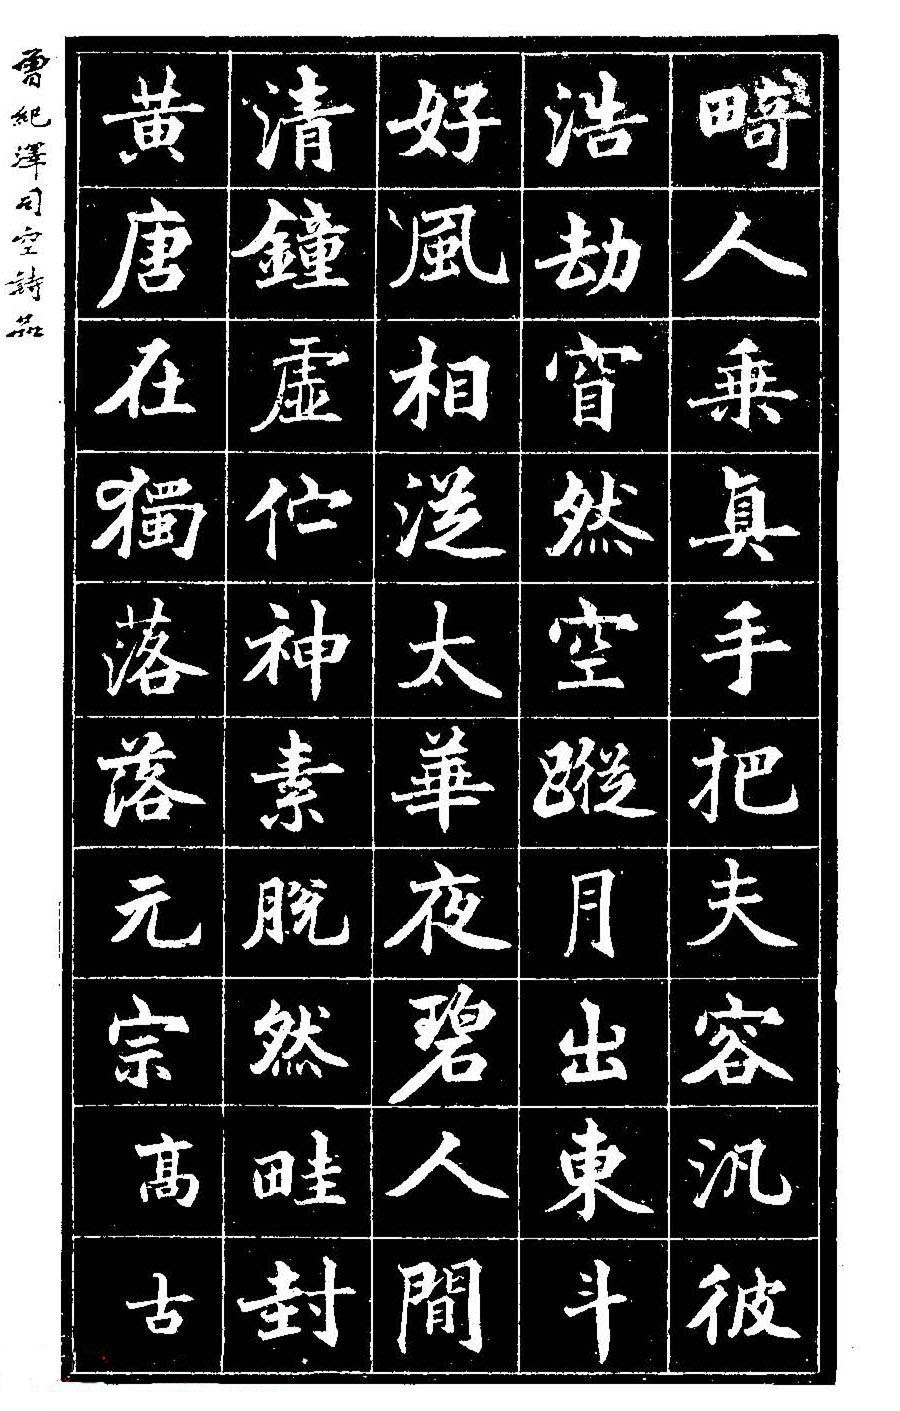 畸人乗真手把夫容汎彼
浩劫窅然空蹤月出東斗
好風相從太華夜碧人間
清鐘虛佇神素脫然畦封
黃唐在獨落落元宗高古
曾紀澤司空詩品